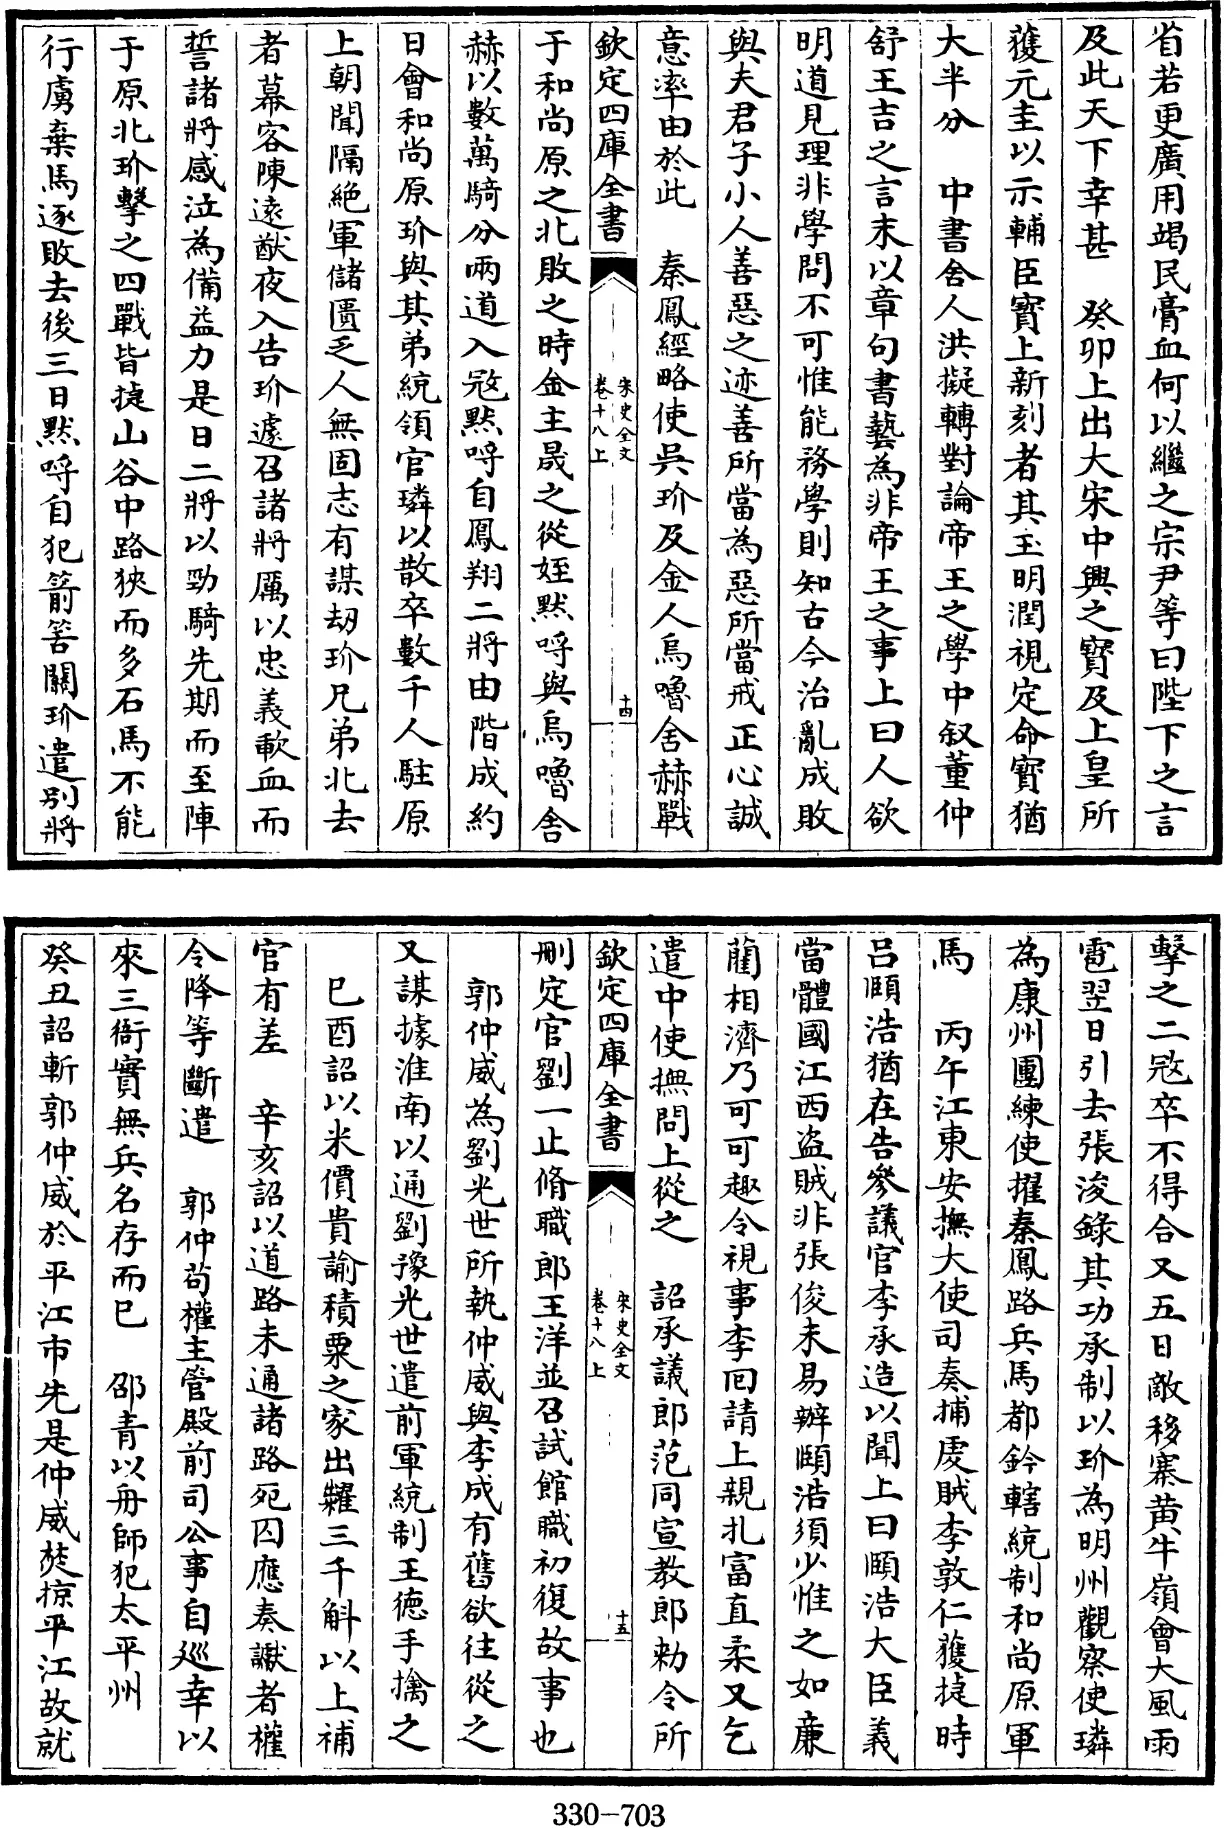 省若更廣用竭民膏血何以繼之宗尹等曰陛下之言
及此天下幸甚　癸卯上出大宋中興之寶及上皇所
獲元圭以示輔臣寶上新刻者其玉明潤視定命寶猶
大半分　中書舍人洪擬轉對論帝王之學中叙董仲
舒王吉之言末以章句書藝為非帝王之事上曰人欲
明道見理非學問不可惟能務學則知古今治亂成敗
與夫君子小人善惡之迹善所當為惡所當戒正心誠
意率由於此　秦鳳經略使吳玠及金人烏嚕舍赫戰
欽定四庫全書
宋史全文
卷十八上
十四
于和尚原之北敗之時金主晟之從姪默呼與烏嚕舍
赫以數萬騎分兩道入𡨥默呼自鳳翔二將由階成約
日會和尚原玠與其弟統領官璘以散卒數千人駐原
上朝聞隔絶軍儲匱乏人無固志有謀刼玠兄弟北去
者幕客陳遠猷夜入告玠遽召諸將厲以忠義歃血而
誓諸將感泣為備益力是日二將以勁騎先期而至陣
于原北玠擊之四戰皆捷山谷中路狹而多石馬不能
行虜棄馬逐敗去後三日默呼自犯箭筈關玠遣别將
擊之二𡨥卒不得合又五日敵移寨黄牛嶺會大風雨
雹翌日引去張浚錄其功承制以玠為明州觀察使璘
為康州團練使擢秦鳳路兵馬都鈐轄統制和尚原軍
馬　丙午江東安撫大使司奏捕虔賊李敦仁獲捷時
吕頤浩猶在告參議官李承造以聞上曰頤浩大臣義
當體國江西盗賊非張俊未易辦頤浩須少惟之如亷
藺相濟乃可可趣令視事李回請上親札富直柔又乞
遣中使撫問上從之　詔承議郎范同宣教郎勑令所
欽定四庫全書
宋史全文
卷十八上
十五
刪定官劉一止脩職郎王洋並召試館職初復故事也
郭仲威為劉光世所執仲威與李成有舊欲往從之
又謀據淮南以通劉豫光世遣前軍統制王德手擒之
已酉詔以米價貴諭積粟之家出糶三千斛以上補
官有差　辛亥詔以道路未通諸路死囚應奏讞者權
令降等斷遣　郭仲荀權主管殿前司公事自廵幸以
來三衙實無兵名存而已　邵青以舟師犯太平州
癸丑詔斬郭仲威於平江市先是仲威焚掠平江故就
330-703